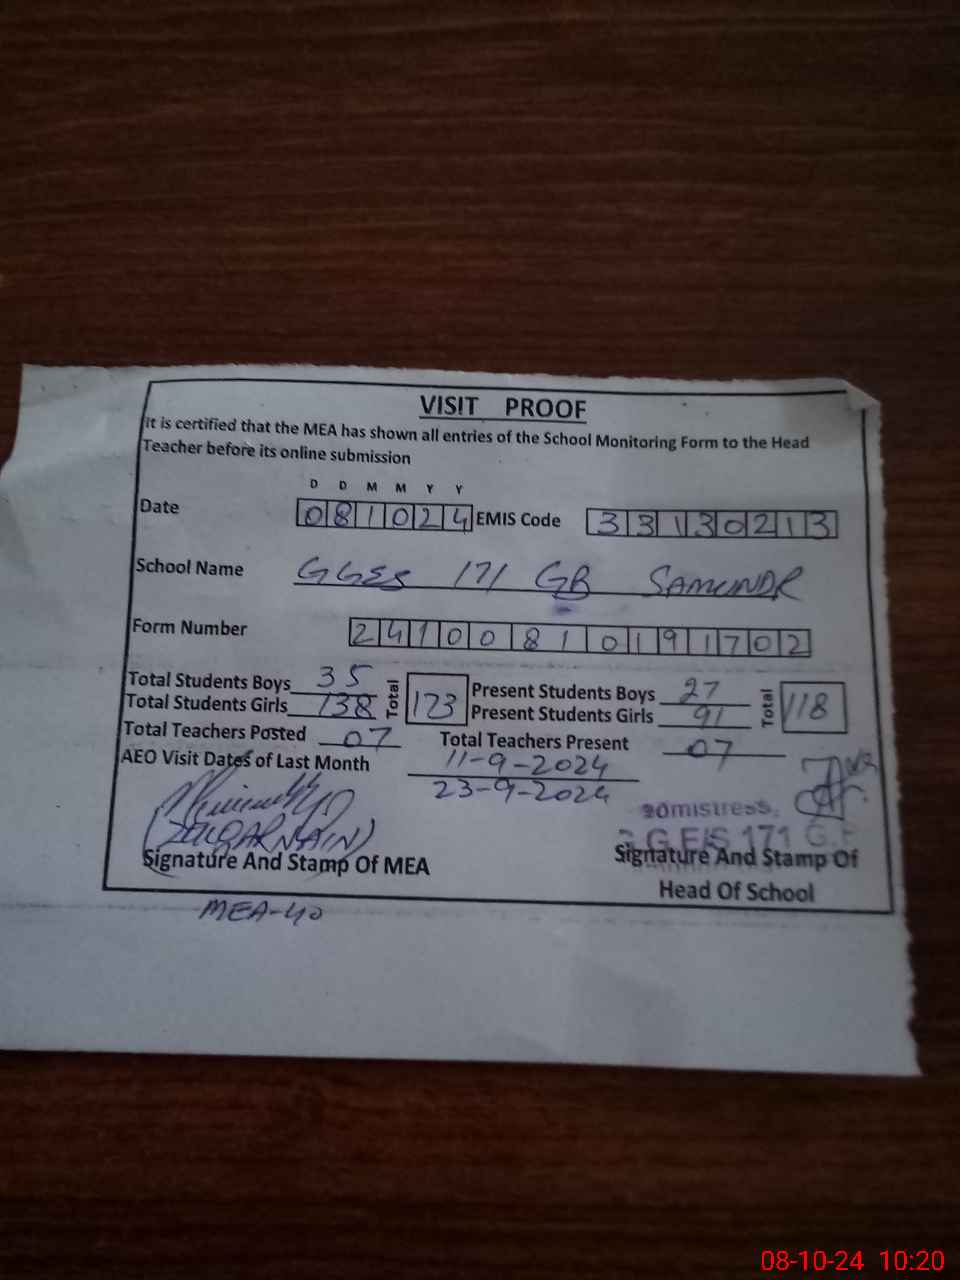 VISIT PROOF
It is certified that the MEA has shown all entries of the School Monitoring Form to the Head
Teacher before its online submission
D D M M Y Y
Date 081024 EMIS Code 33130213
School Name GGES 171 GB SAMUNDR
Form Number 2410081019 1702
Total Students Boys 35 Total 173 Present Students Boys 27 Total 118
Total Students Girls 138 Present Students Girls 91
Total Teachers Posted 07 Total Teachers Present 07
AEO Visit Dates of Last Month 11-9-2024
23-9-2024
(ZULQARNAIN)
Signature And Stamp Of MEA
MEA-40
admistress,
G.G.E/S 171 G.
Signature And Stamp Of
Head Of School
08-10-24 10:20